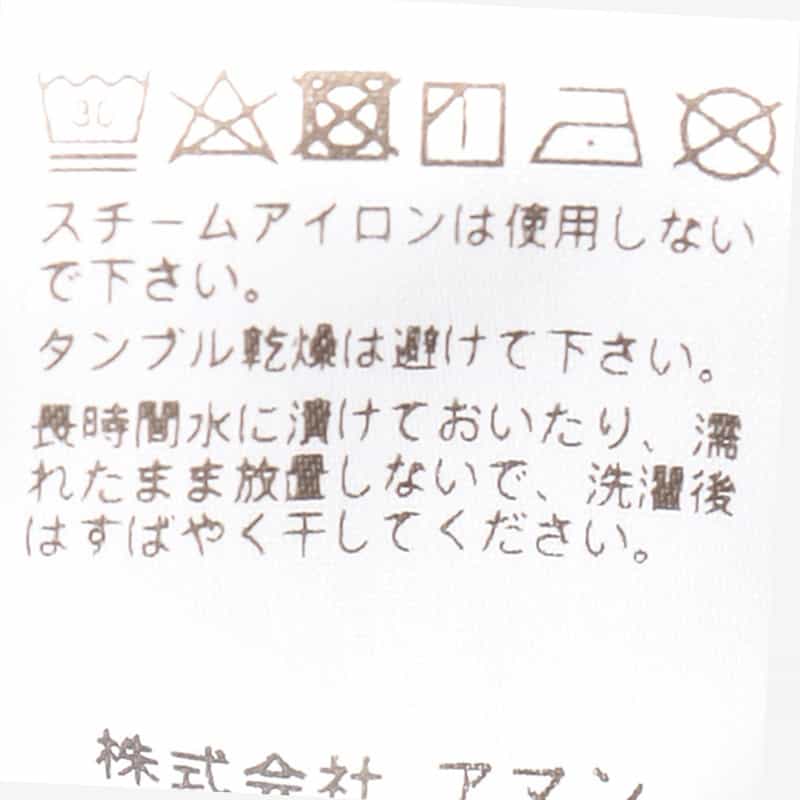 30
スチームアイロンは使用しない
で下さい。
タンブル乾燥は避けて下さい。
長時間水に漬けておいたり、濡
れたまま放置しないで、洗濯後
はすばやく干してください。
株式会社 アマン